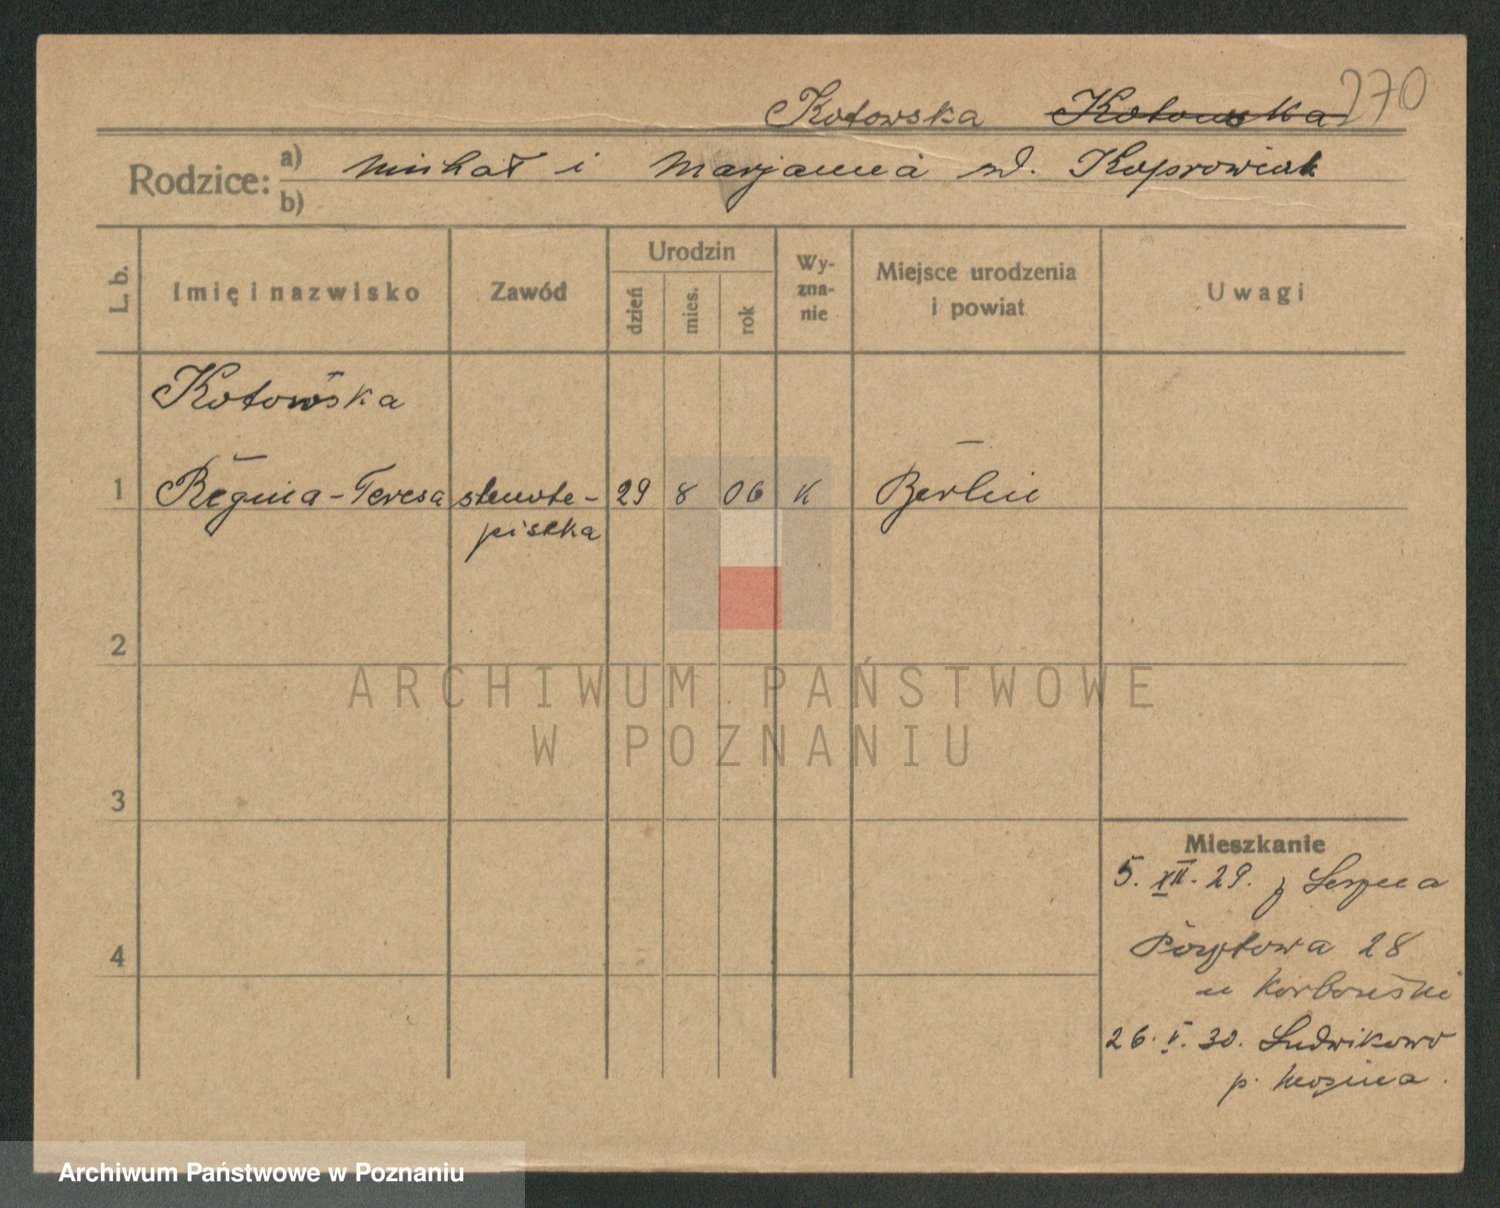 270
Kotowska Kotowska
Rodzice: a) Michał i Marjanna zd. Koprowiak
b)
L. b. Imię i nazwisko Zawód Urodzin dzień mies. rok Wy-zna-nie Miejsce urodzenia i powiat Uwagi
Kotowska
1 Regina-Teresa stenote- 29 8 06 k Berlin
pistka
2
3
4
Mieszkanie
5. XII. 29. z
Pocztowa 28
u
26. V. 30. Ludwikowo
p. Mosina.
ARCHIWUM PAŃSTWOWE
W POZNANIU
Archiwum Państwowe w Poznaniu